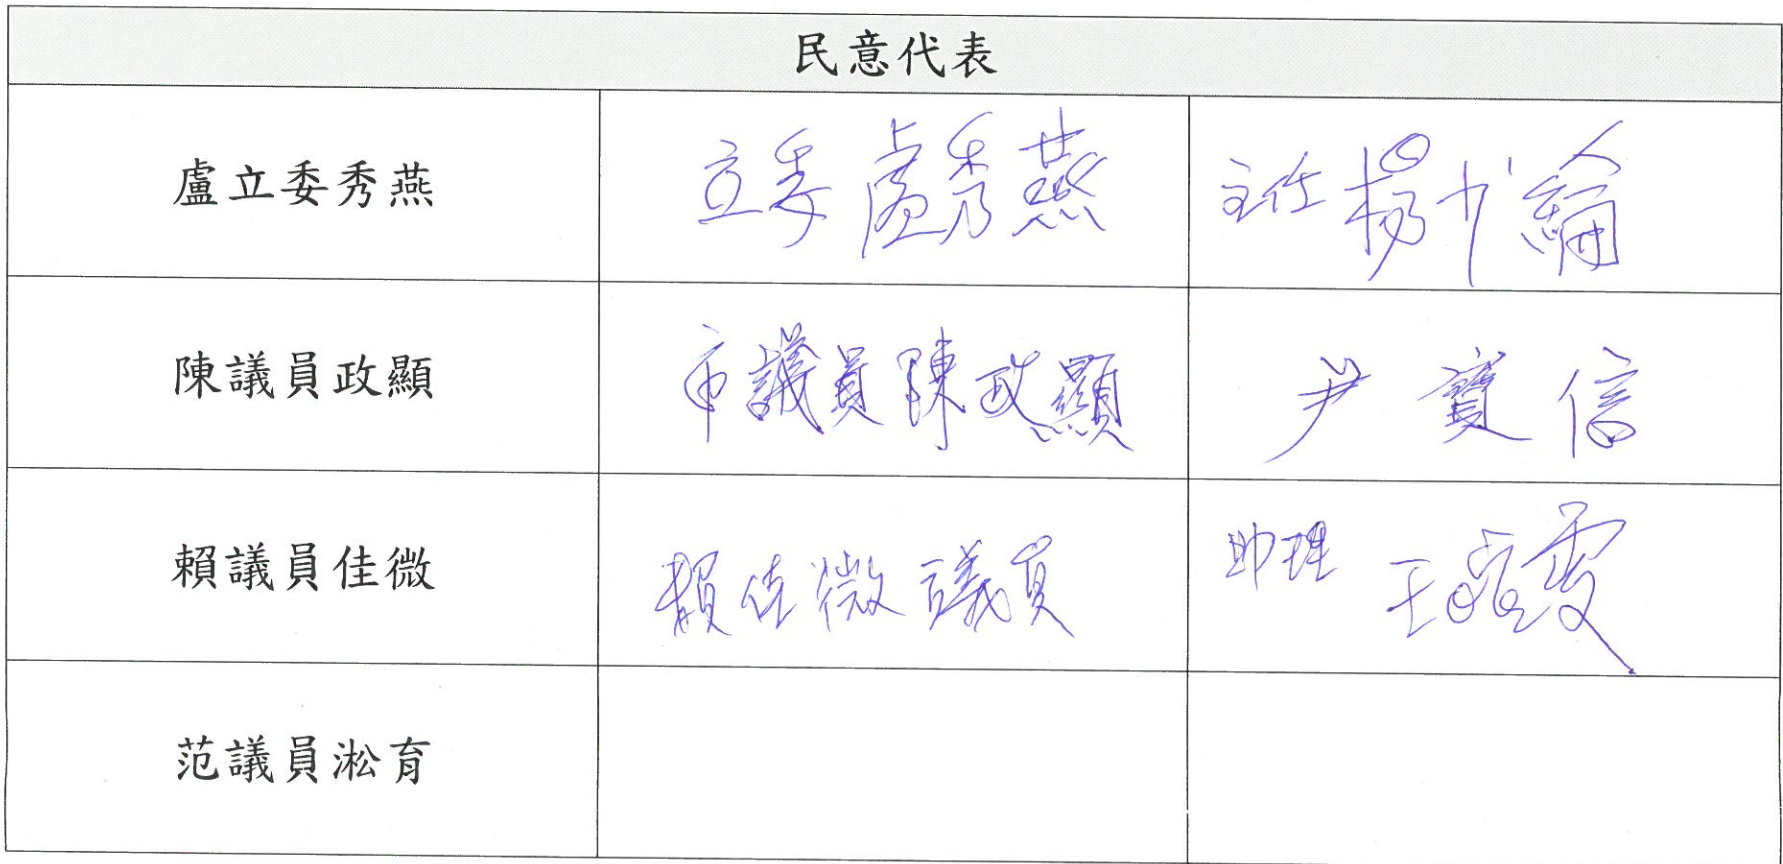 民意代表
盧立委秀燕 立委盧秀燕 主任楊
陳議員政顯 市議員陳政顯 尹寶信
賴議員佳微 賴佳微議員 助理 王
范議員淞育